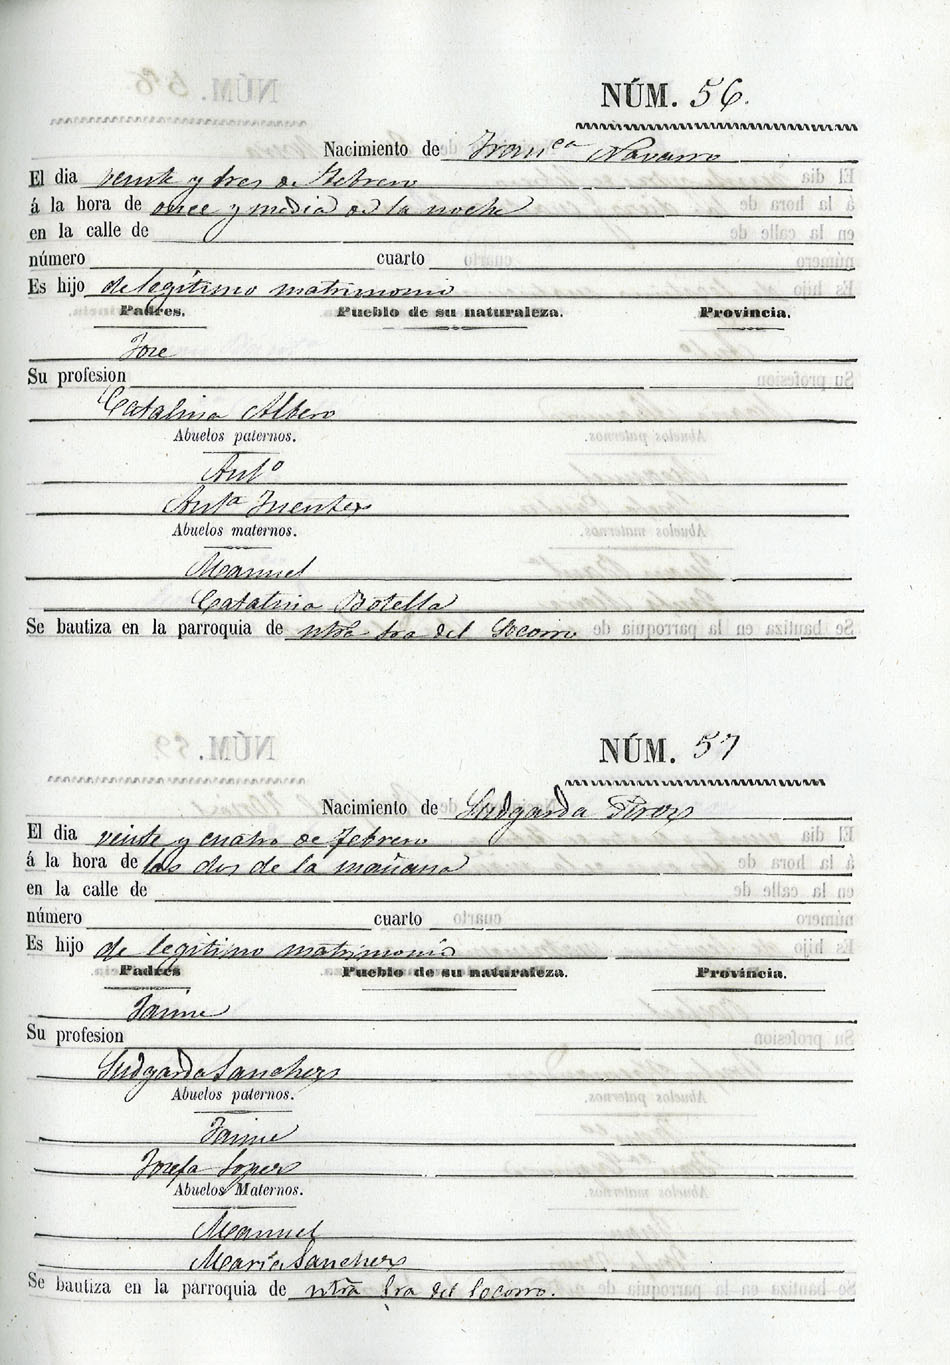 NÚM. 56.
Nacimiento de Fran^ca Navarro
El dia veinte y tres de Febrero
á la hora de once y media de la noche
en la calle de
número cuarto
Es hijo de legítimo matrimonio
Padres. Pueblo de su naturaleza. Provincia.
Jose
Su profesion
Catalina Albero
Abuelos paternos.
Ant^o
Ant^a Fuentes
Abuelos maternos.
Manuel
Catalina Botella
Se bautiza en la parroquia de ntra Sra del Socorro
NÚM. 57
Nacimiento de Ludgarda Perez
El dia veinte y cuatro de febrero
á la hora de las dos de la mañana
en la calle de
número cuarto
Es hijo de legitimo matrimonio
Padres Pueblo de su naturaleza. Provincia.
Jaime
Su profesion
Ludgarda Sanchez
Abuelos paternos.
Jaime
Josefa Lopez
Abuelos Maternos.
Manuel
Maria Sanchez
Se bautiza en la parroquia de ntra Sra del Socorro.